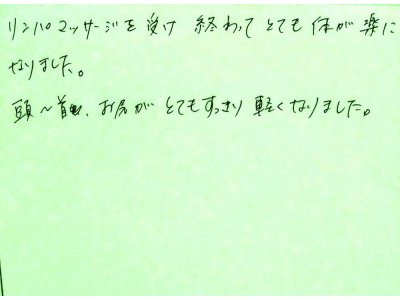 リンパマッサージを受け 終わって とても 体が 楽に
なりました。
頭〜首、お肩が とてもすっきり 軽くなりました。